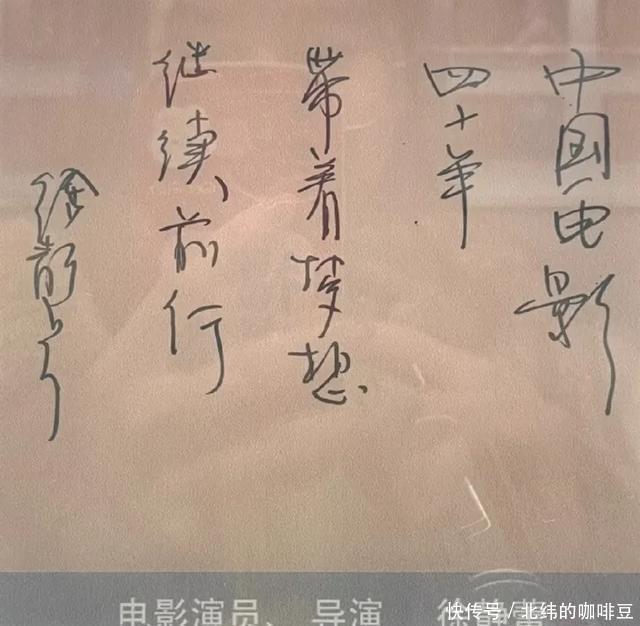 中国电影
四十年
带着梦想
继续前行
电影演员、 导演 徐静蕾
快传号 / 北纬的咖啡豆